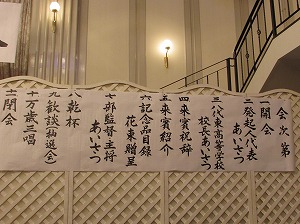 会次第
一開会
二発起人代表
あいさつ
三八代東高等学校
校長あいさつ
四来賓祝辞
五来賓紹介
六記念品目録
花束贈呈
七部監督主将
あいさつ
八乾杯
九歓談(抽選会)
十万歳三唱
十一閉会